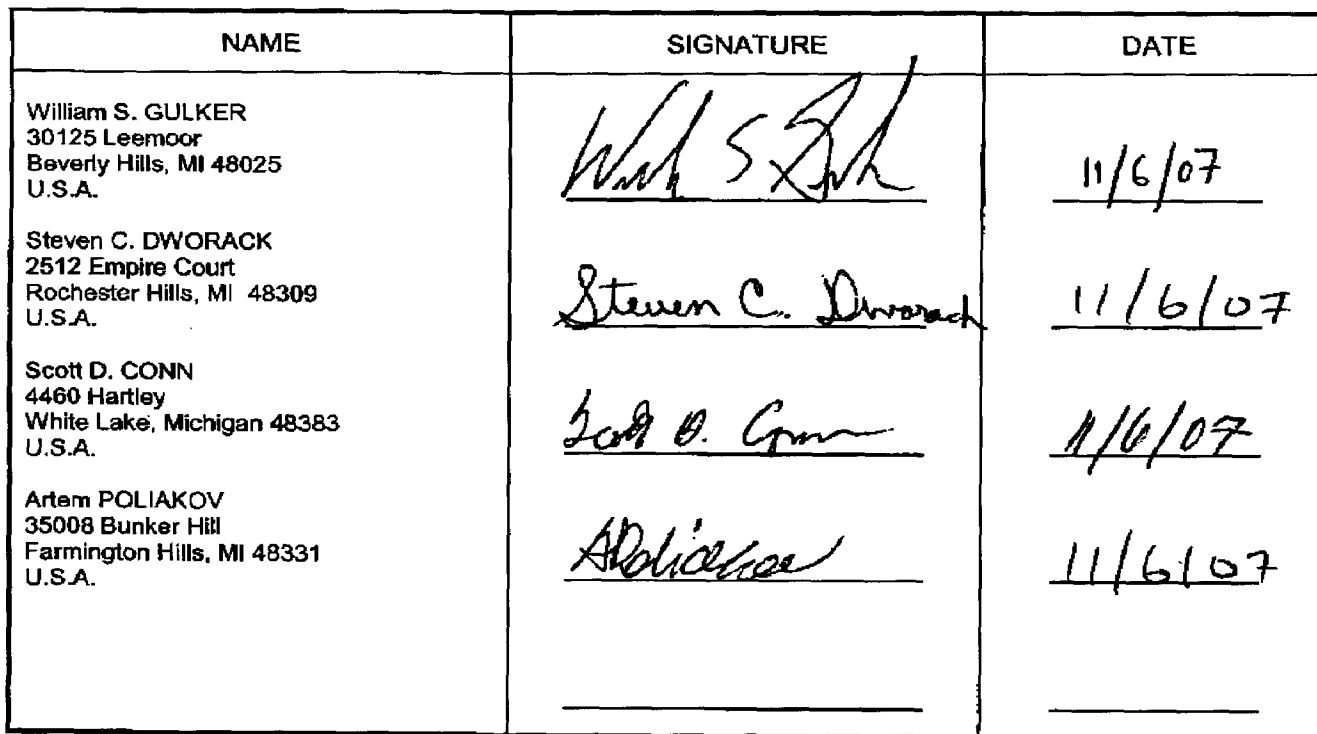 NAME SIGNATURE DATE
William S. GULKER
30125 Leemoor
Beverly Hills, MI 48025
U.S.A.
11/6/07
Steven C. DWORACK
2512 Empire Court
Rochester Hills, MI 48309
U.S.A.
Steven C. Dworack 11/6/07
Scott D. CONN
4460 Hartley
White Lake, Michigan 48383
U.S.A.
Scott D. Conn 11/6/07
Artem POLIAKOV
35008 Bunker Hill
Farmington Hills, MI 48331
U.S.A.
APoliakov 11/6/07